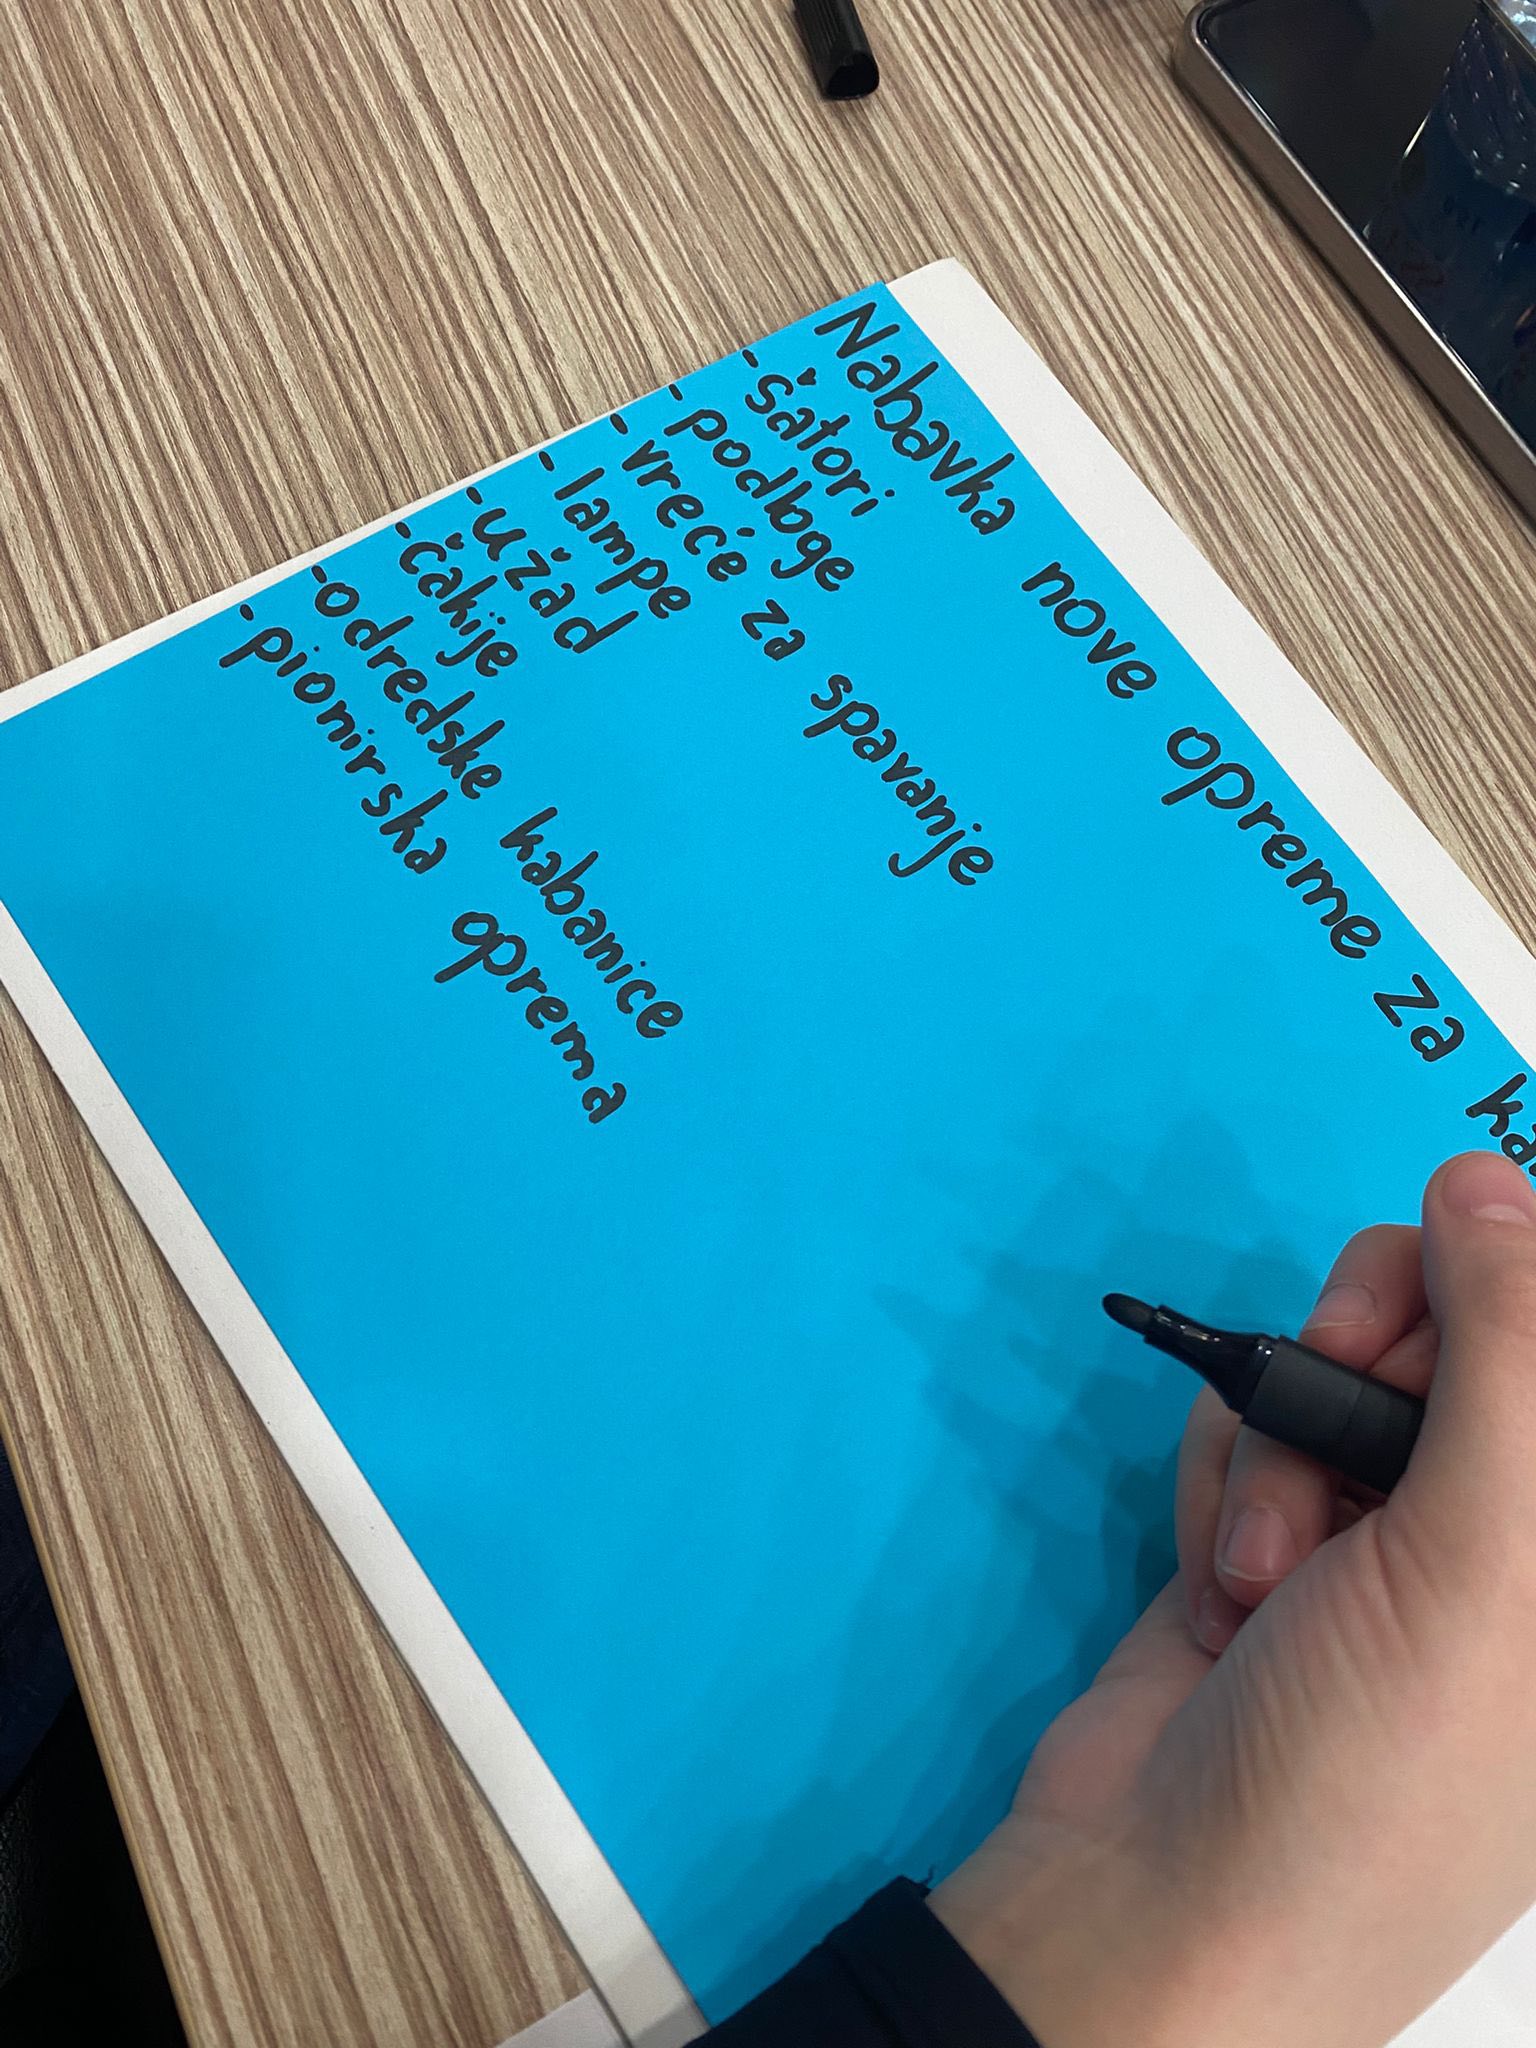 Nabavka nove opreme za
- šatori
- podloge
- vreće za spavanje
- lampe
- užad
- čakije
- odredske kabanice
- pionirska oprema